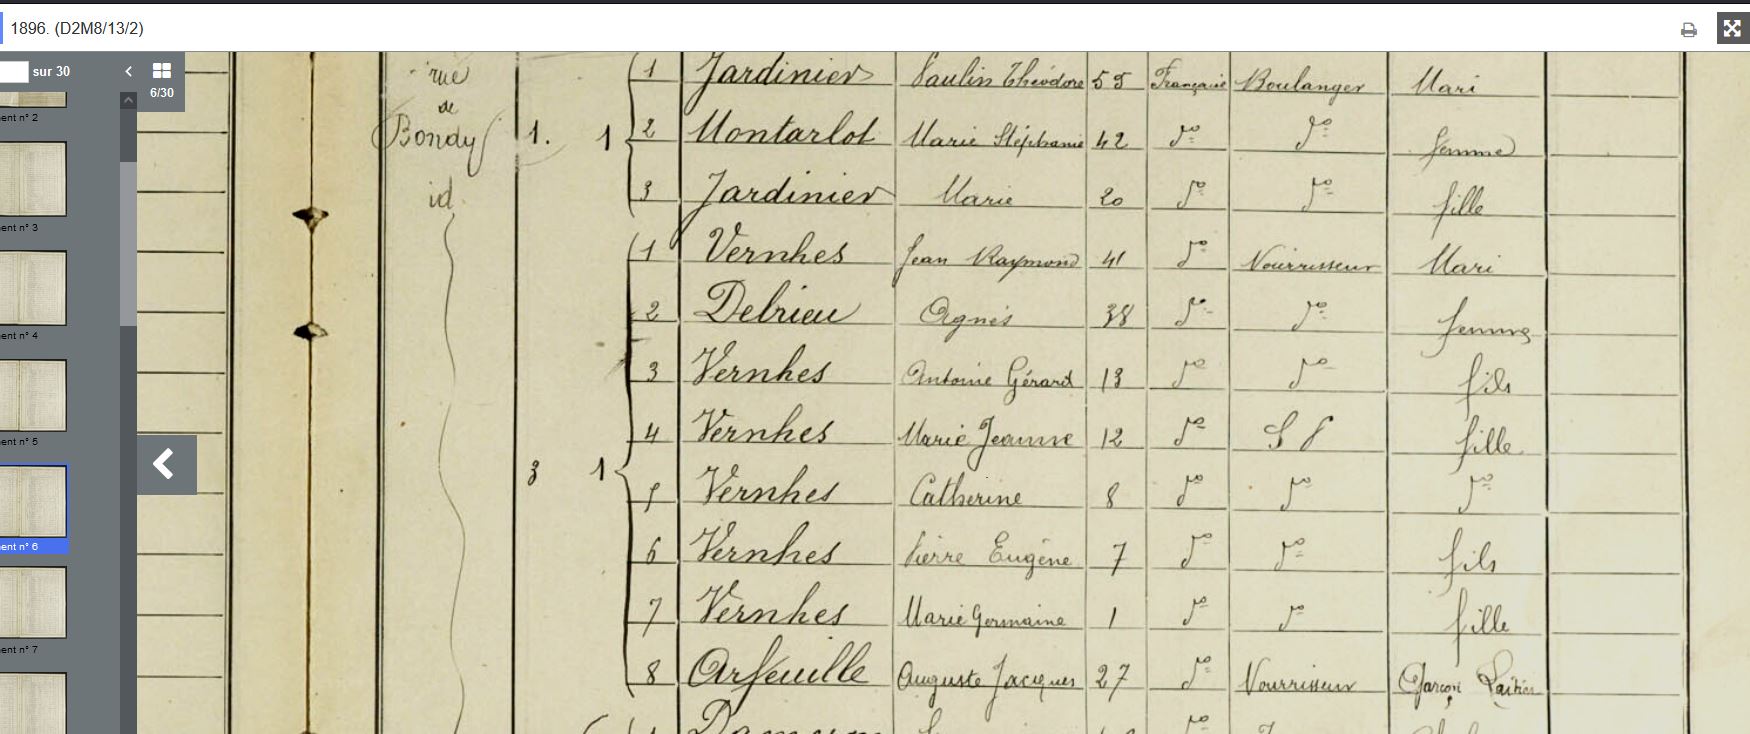 1896. (D2M8/13/2)
sur 30
6/30
ent n° 2
ent n° 3
ent n° 4
ent n° 5
ent n° 6
ent n° 7
rue
de
Bondy
id.
1 Jardinier Paulin Théodore 55 Française Boulanger Mari
1. 1 2 Montarlot Marie Stéphanie 42 do do femme
3 Jardinier Marie 20 do do fille
1 Vernhes Jean Raymond 41 do Nourrisseur Mari
2 Delrieu Agnès 38 do do femme
3 Vernhes Antoine Gérard 13 do do fils
4 Vernhes Marie Jeanne 12 do S P fille
3 1 5 Vernhes Catherine 8 do do do
6 Vernhes Pierre Eugène 7 do do fils
7 Vernhes Marie Germaine 1 do do fille
8 Arfeuille Auguste Jacques 27 do Nourrisseur Garçon Laitier